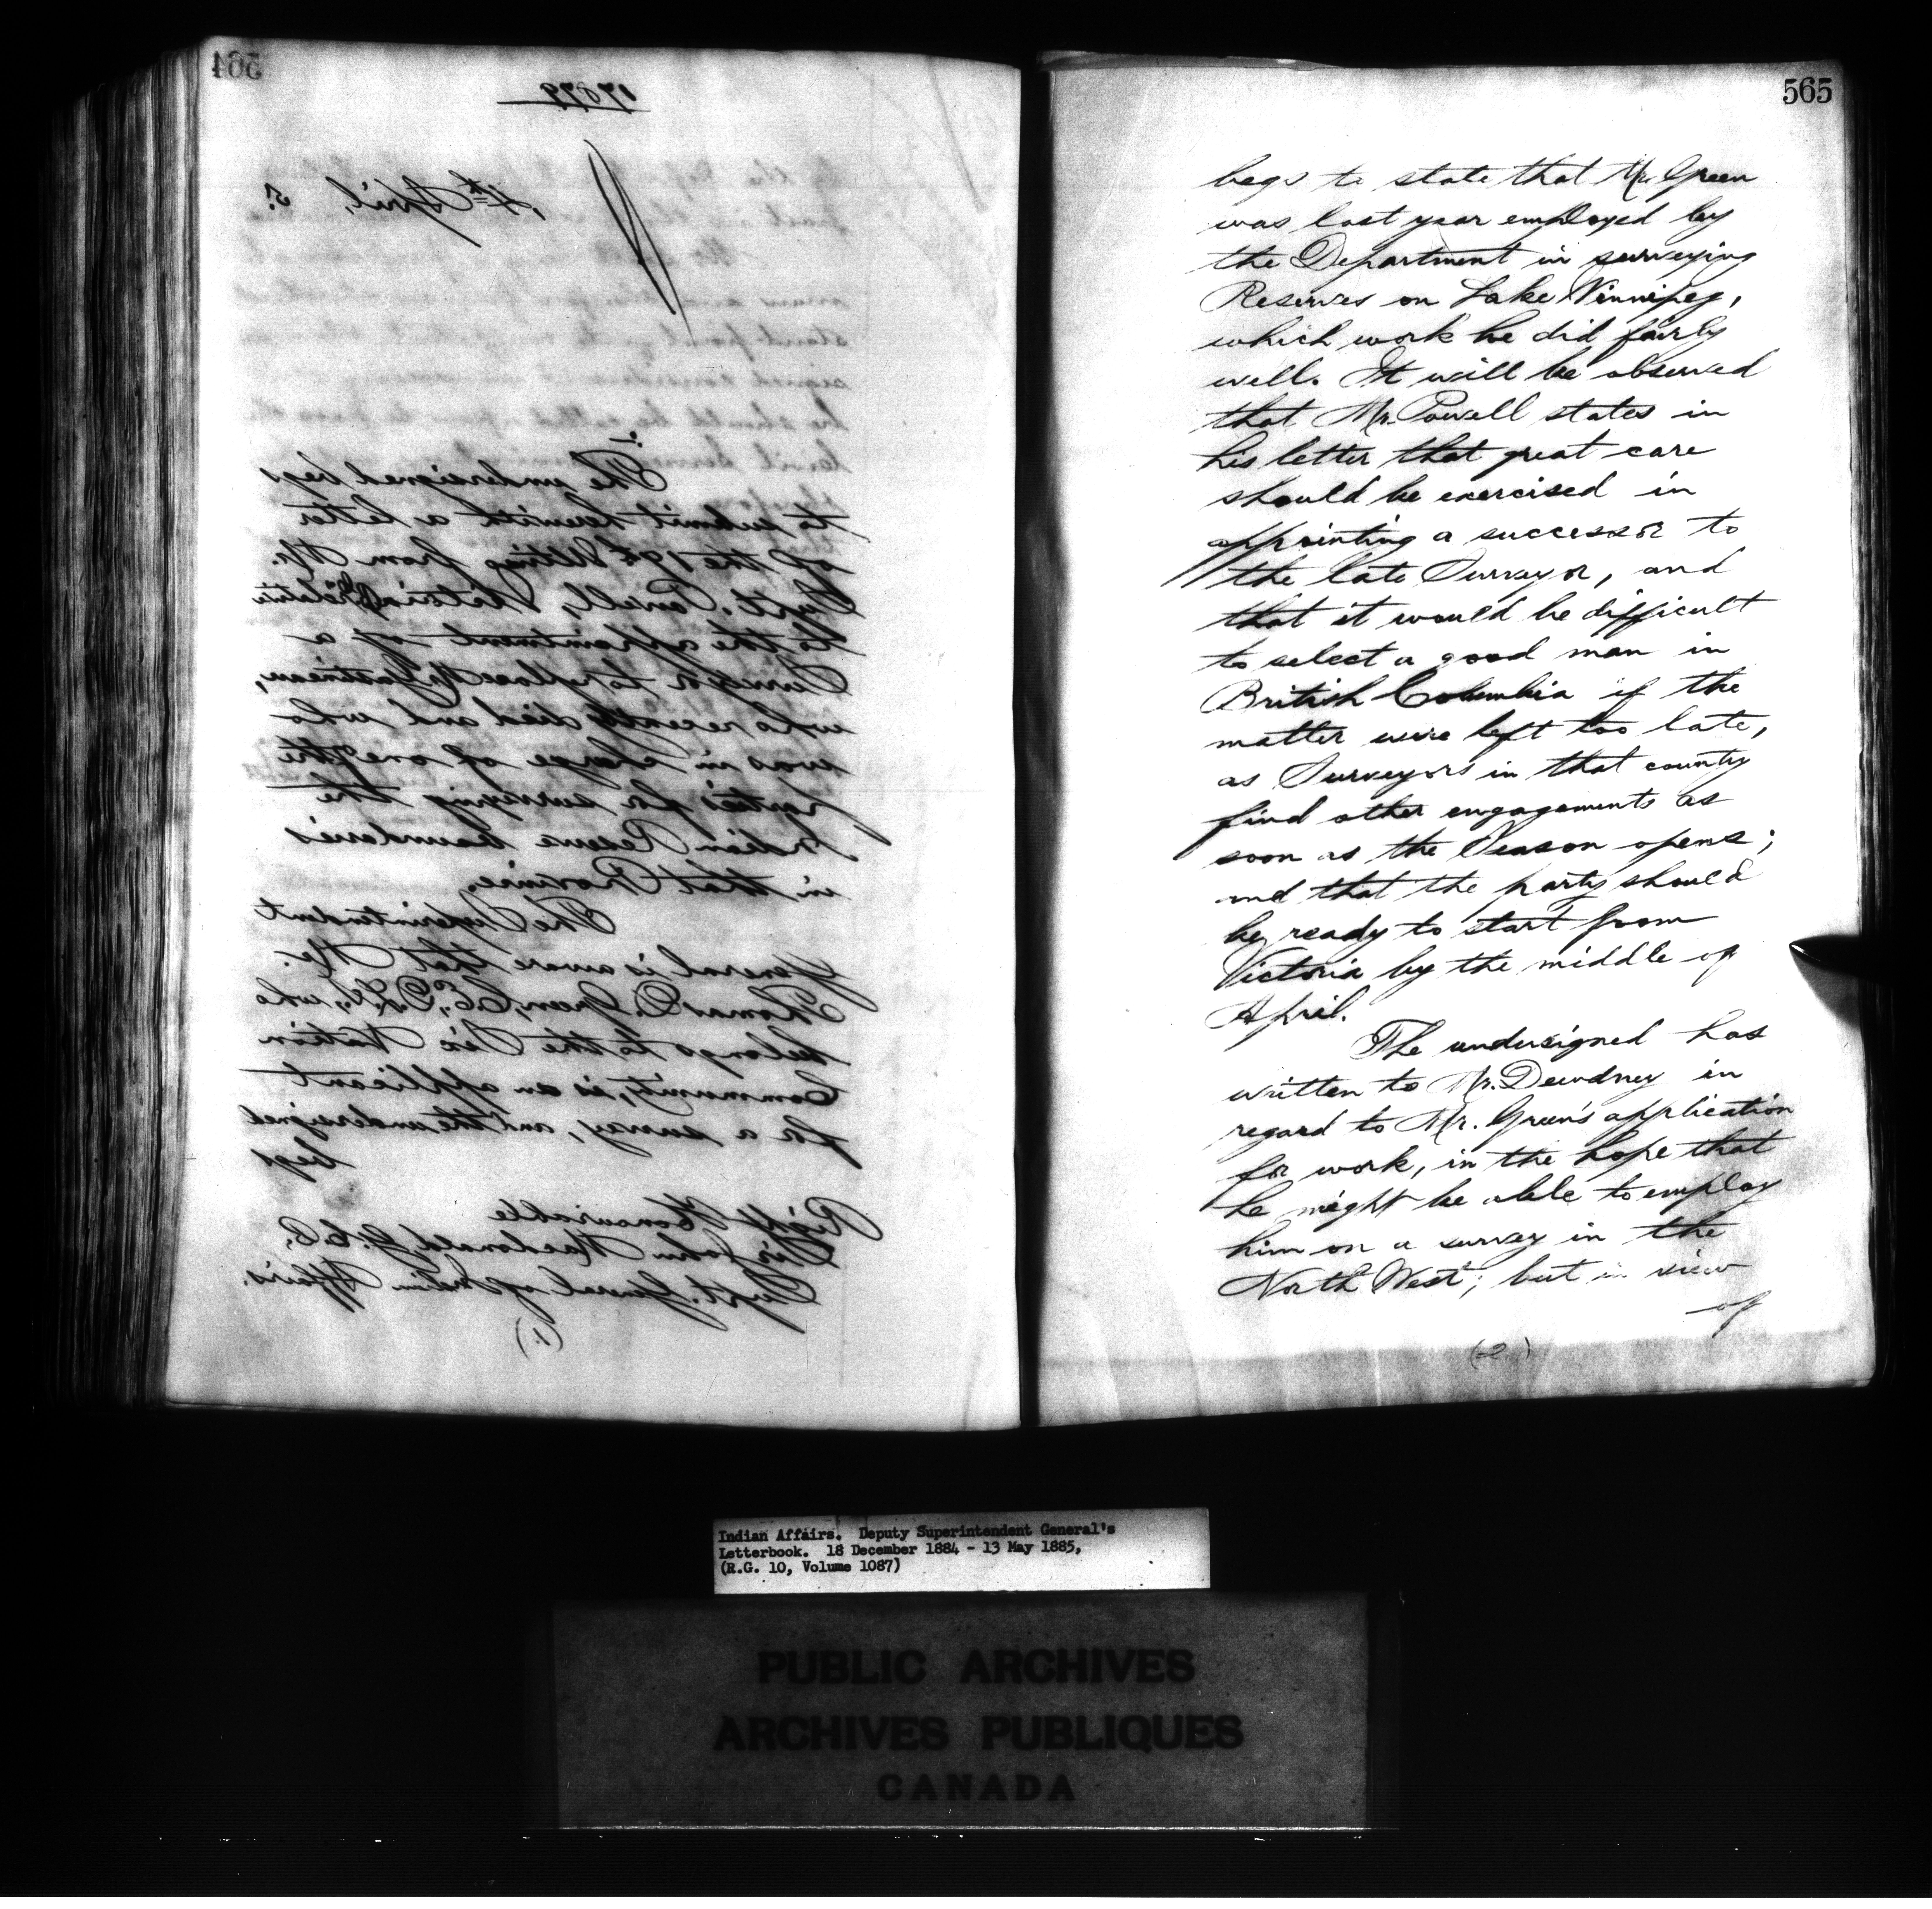 564
17879
4th April, 5.
The undersigned begs
to submit herewith a letter
of the 19th Ultimo from Mr.
Supt. Powell, Victoria, relative
to the appointment of a
Surveyor to replace Mr. Gastineau,
who recently died and who
was in charge of one of the
parties for surveying the
Indian Reserve boundaries
in that Province.
The Superintendent
General is aware that Mr.
Thomas D. Green, C.E., D.L.S., who
belongs to the Six Nation
Community, is an applicant
for a survey, and the undersigned
begs
Right Honourable
Sir John Macdonald, G.C.B.,
Supt. General of Indian Affairs.
(1.)
565
begs to state that Mr. Green
was last year employed by
the Department in surveying
Reserves on Lake Winnipeg,
which work he did fairly
well. It will be observed
that Mr. Powell states in
his letter that great care
should be exercised in
appointing a successor to
the late Surveyor, and
that it would be difficult
to select a good man in
British Columbia if the
matter were left too late,
as Surveyors in that county
find other engagements as
soon as the Season opens;
and that the party should
be ready to start from
Victoria by the middle of
April.
The undersigned has
written to Mr. Dewdney in
regard to Mr. Green's application
for work, in the hope that
he might be able to employ
him on a survey in the
North West; but in view
of
(2)
Indian Affairs. Deputy Superintendent General's
Letterbook. 18 December 1884 - 13 May 1885,
(R.G. 10, Volume 1087)
PUBLIC ARCHIVES
ARCHIVES PUBLIQUES
CANADA